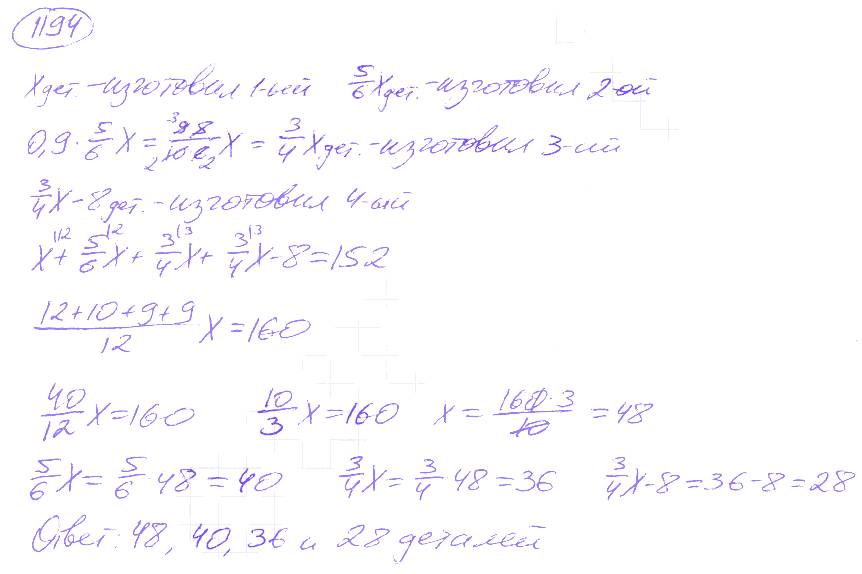 1194
x дет. - изготовил 1-ый 5/6 x дет. - изготовил 2-ой
0,9 · 5/6 x = 9·5/10·6 x = 3/4 x дет. - изготовил 3-ий
3/4 x - 8 дет. - изготовил 4-ый
x + 5/6 x + 3/4 x + 3/4 x - 8 = 152
12+10+9+9/12 x = 160
40/12 x = 160 10/3 x = 160 x = 160·3/10 = 48
5/6 x = 5/6 · 48 = 40 3/4 x = 3/4 · 48 = 36 3/4 x - 8 = 36 - 8 = 28
Ответ: 48, 40, 36 и 28 деталей